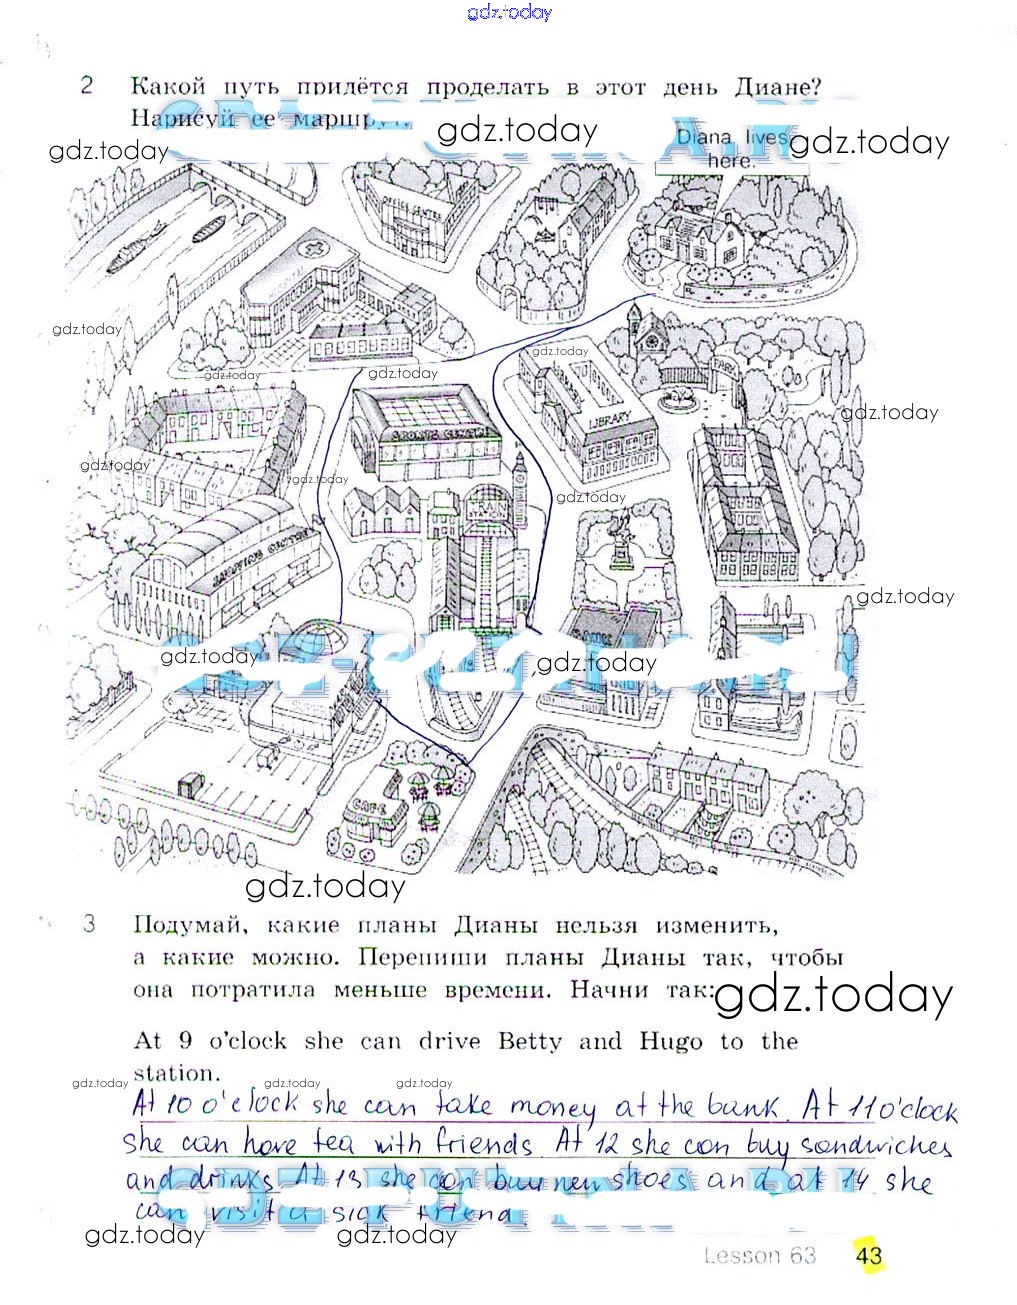 gdz.today
2 Какой путь придётся проделать в этот день Диане?
Нарисуй ее маршрут.
gdz.today
gdz.today
gdz.today
Diana lives
here.
OFFICE CENTRE
gdz.today
gdz.today
gdz.today
gdz.today
LIBRARY
LIBRARY
PARK
gdz.today
SPORTS CENTRE
gdz.today
gdz.today
gdz.today
TRAIN
STATION
SHOPPING CENTRE
gdz.today
BANK
gdz.today
gdz.today
CAFE
gdz.today
3 Подумай, какие планы Дианы нельзя изменить,
а какие можно. Перепиши планы Дианы так, чтобы
она потратила меньше времени. Начни так:
gdz.today
At 9 o'clock she can drive Betty and Hugo to the
station.
gdz.today gdz.today gdz.today
At 10 o'clock she can take money at the bank. At 11 o'clock
she can have tea with friends. At 12 she can buy sandwiches
and drinks. At 13 she can buy new shoes and at 14 she
can visit a sick friend.
gdz.today gdz.today
Lesson 63 43